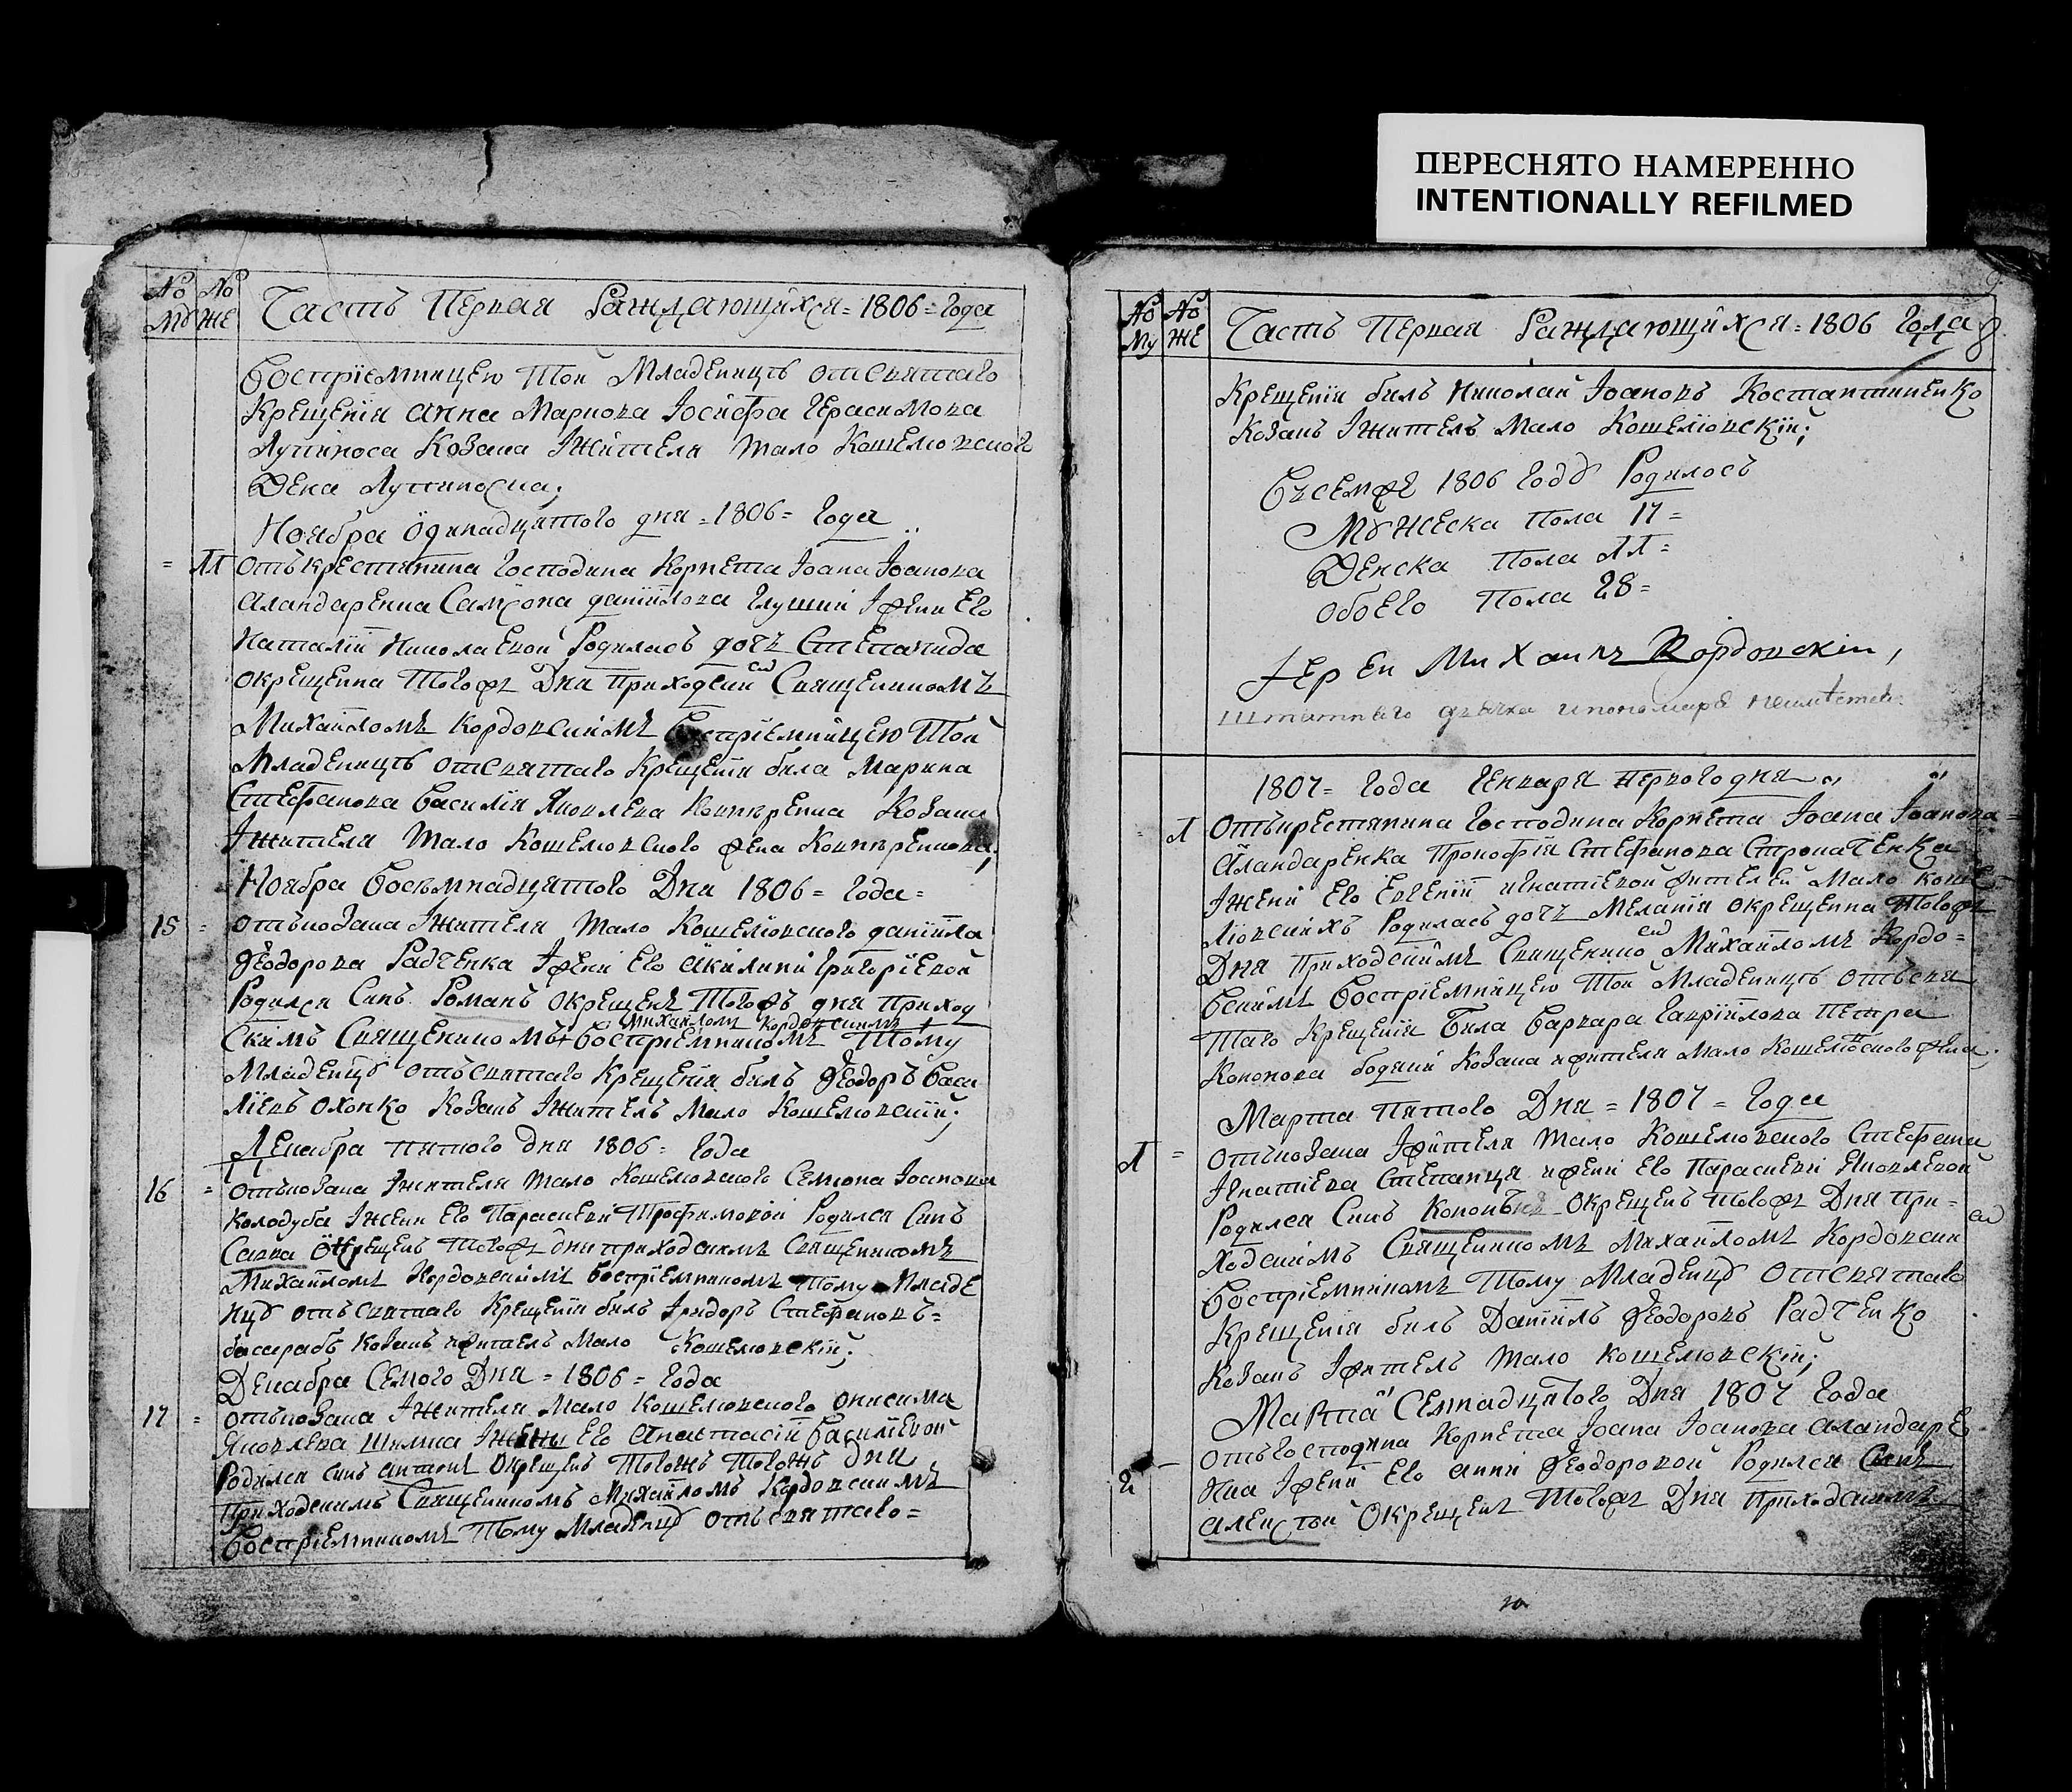 ПЕРЕСНЯТО НАМЕРЕННО
INTENTIONALLY REFILMED
№ Мꙋ № ЖЕ Часть Первая Раждающихся = 1806 = года
Воспрїемницею Той Младеницѣ отсвятаго
Крещенїя анна Маркова Іосифа Герасимова
Козака Іжителя Мало Кошелювского
Ноября Одинадцятого дня = 1806 = Года
= 11 Отъкрестянина Господина Корнета Іоана Іоанова
Аландаренка Самсона данїилова Іжени Его
Наталїи Николаевой Родилась дочь Степанида
окрещенна Тогожъ Дня Приходским Священикомъ
Михайломъ Кордовскимъ Воспрїемницею Той
Младеницѣ отсвятаго Крещенїя била Марина
Стефанова Василїя Яковлева Козака
Іжителя Мало Кошелювского жена
Ноября Восьмнадцятого Дня 1806 = Года =
15 = Отъкозака Іжителя Мало Кошелювского данїила
Ѳеодорова Радченка Іжени Его Акилини Григорїевой
Родился Синъ Романъ окрещенъ Тогожъ дня Приход
Михайломъ Кордовскимъ
скимъ Священикомъ + Воспрїемникомъ Тому
Младенцꙋ отъсвятаго Крещенїя билъ Ѳеодоръ Васи
лїевъ Охонко Козакъ Іжитель Мало Кошелювскїй;
Декабра пятого дня 1806 = Года
16 = Отъкозака Іжителя Мало Кошелювского Семіона Іоанова
Колодуба Іжени Его Параскеви Трофимовой Родился Синъ
Савва Окрещенъ Тогожъ дня приходскимъ Священикомъ
Михайломъ Кордовскимъ Воспрїемникомъ Тому Младе
нцꙋ отъсвятаго Крещенїя билъ Стефановъ =
Козакъ іжитель Мало Кошелювскїй;
Декабра Семого Дня = 1806 = Года
17 = Отъкозака Іжителя Мало Кошелювского Онисима
Яковлева Іжени Его Анастасїи Василїевой
Родился синъ антонъ Окрещенъ Тогожъ Тогожъ Дня
Приходскимъ Священикомъ Михайломъ Кордовскимъ
Воспрїемникомъ Тому Младенцꙋ Отъсвятаго =
№ Му № ЖЕ Часть Первая Раждающихся = 1806 Года 8
Крещенїя билъ Николай Іоановъ Костантиненко
Козакъ Іжитель Мало Кошелїовскїй;
Въсемже 1806 Годꙋ Родилось
Мꙋжеска Пола 17 =
Женска Пола 11 =
обоего Пола 28 =
Іерей Михаилъ Кордовскій,
1807 = Года Генваря Первого дня
= 1 Отъкрестянина Господина Корнета Іоана Іоанова =
Аландаренка Прокофїя Стефанова
Іжени Его Евгенїи Игнатїевой жителей Мало Коше
лїовскихъ Родилась дочь Меланїя окрещенна Тогожъ
Дня Приходскимъ Священико Михайломъ Кордо =
вскимъ Воспрїемницею Той Младеницѣ отъсвя
таго Крещенїя Била Варвара Гаврїилова Петра
Кононова Козака ижителя Мало Кошелювского жена.
Марта Пятого Дня = 1807 = Года
1 = Отъкозака Іжителя Мало Кошелювского Стефана
Ігнатїева Степанця ижени Его Параскеви Яковлевой
Родился Синъ Кононъ Окрещенъ Тогожъ Дня При =
ходскимъ Священикомъ Михайломъ Кордовским
Воспрїемникомъ Тому Младенцꙋ отсвятаго
Крещенїя билъ Данїилъ Ѳеодоровъ Радченко
Козакъ Іжитель Мало Кошелювскїй;
Марта Семнадцятого Дня 1807 Года
2 Отъгосподина Корнета Іоана Іоанова Аландаре
нка Іжени Его Анни Ѳеодоровой Родился Синъ
Алексїй Окрещенъ Тогожъ Дня Приходскимъ